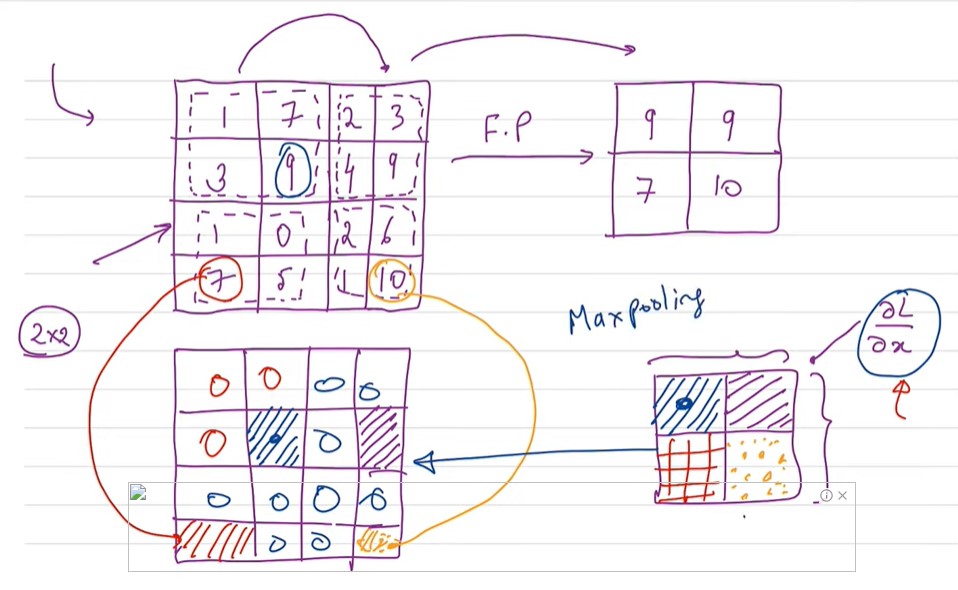 1 7 2 3
3 9 4 9
1 0 2 6
7 5 1 10
F.P
9 9
7 10
2x2
Maxpooling
∂L
∂x
0 0 0 0
0 0
0 0 0 0
0 0